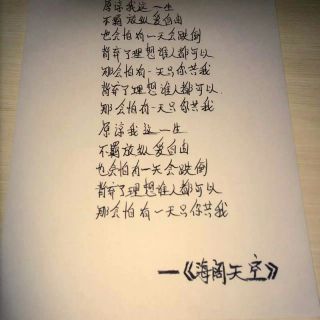 原谅我这一生
不羁放纵爱自由
也会怕有一天会跌倒
背弃了理想谁人都可以
那会怕有一天只你共我
背弃了理想谁人都可以
那会怕有一天只你共我
原谅我这一生
不羁放纵爱自由
也会怕有一天会跌倒
背弃了理想谁人都可以
那会怕有一天只你共我
—《海阔天空》